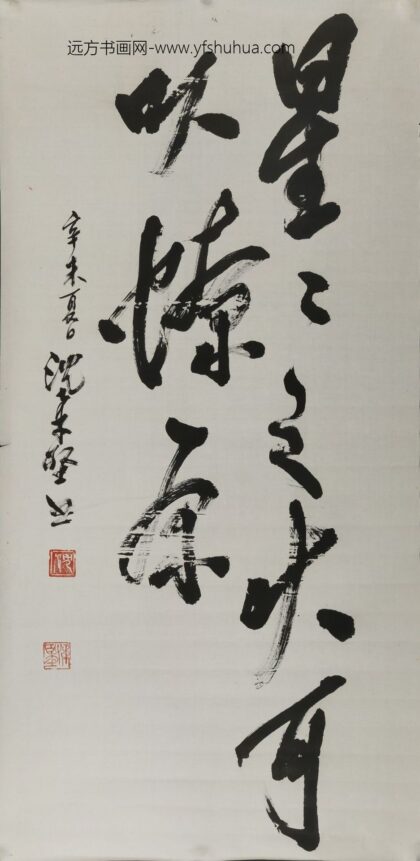 远方书画网-www.yfshuhua.com
星〻之火可
以燎原
辛未夏日 沈木坚书